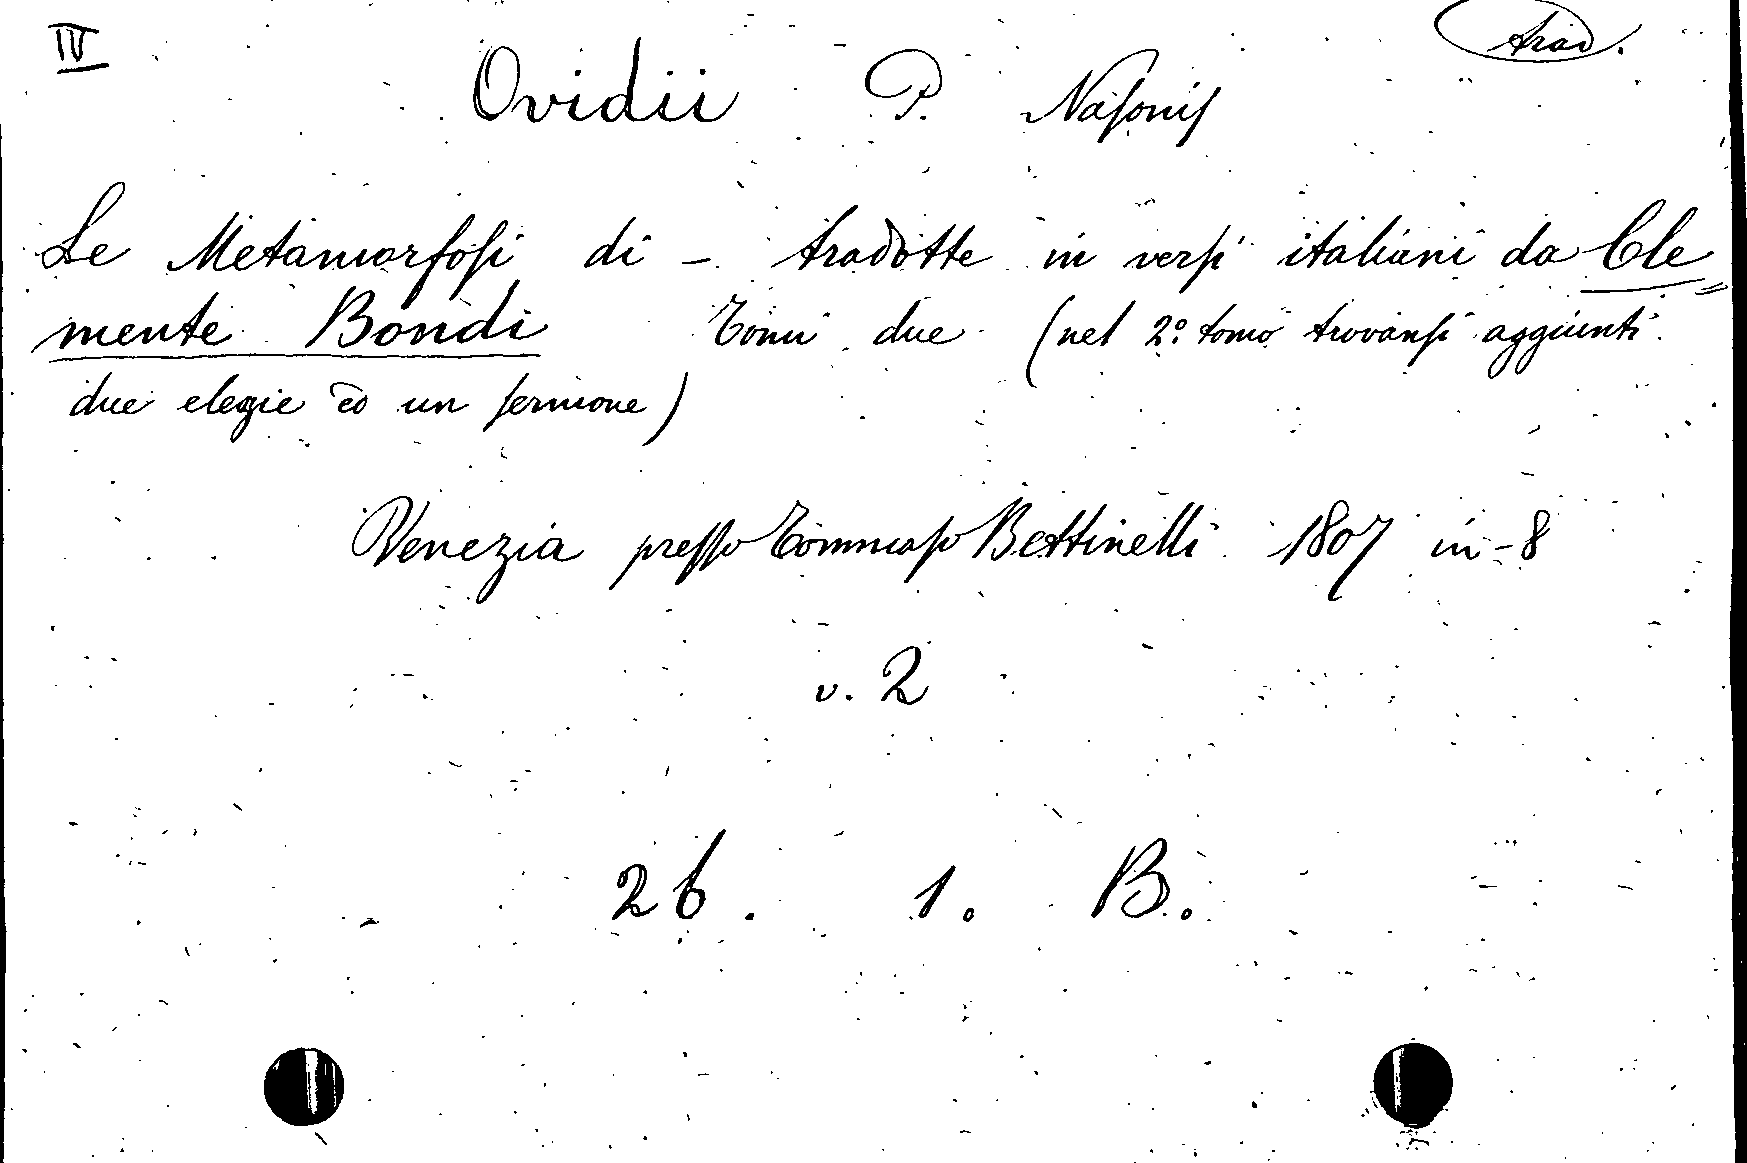 IV
Trad.
Ovidii P. Nasonis
Le Metamorfosi di – tradotte in versi italiani da Cle=
mente Bondi Tomi due (nel 2º tomo trovansi aggiunti
due elegie ed un sermione)
Venezia presso Tommaso Bettinelli 1807 in-8
v. 2
26. 1. B.